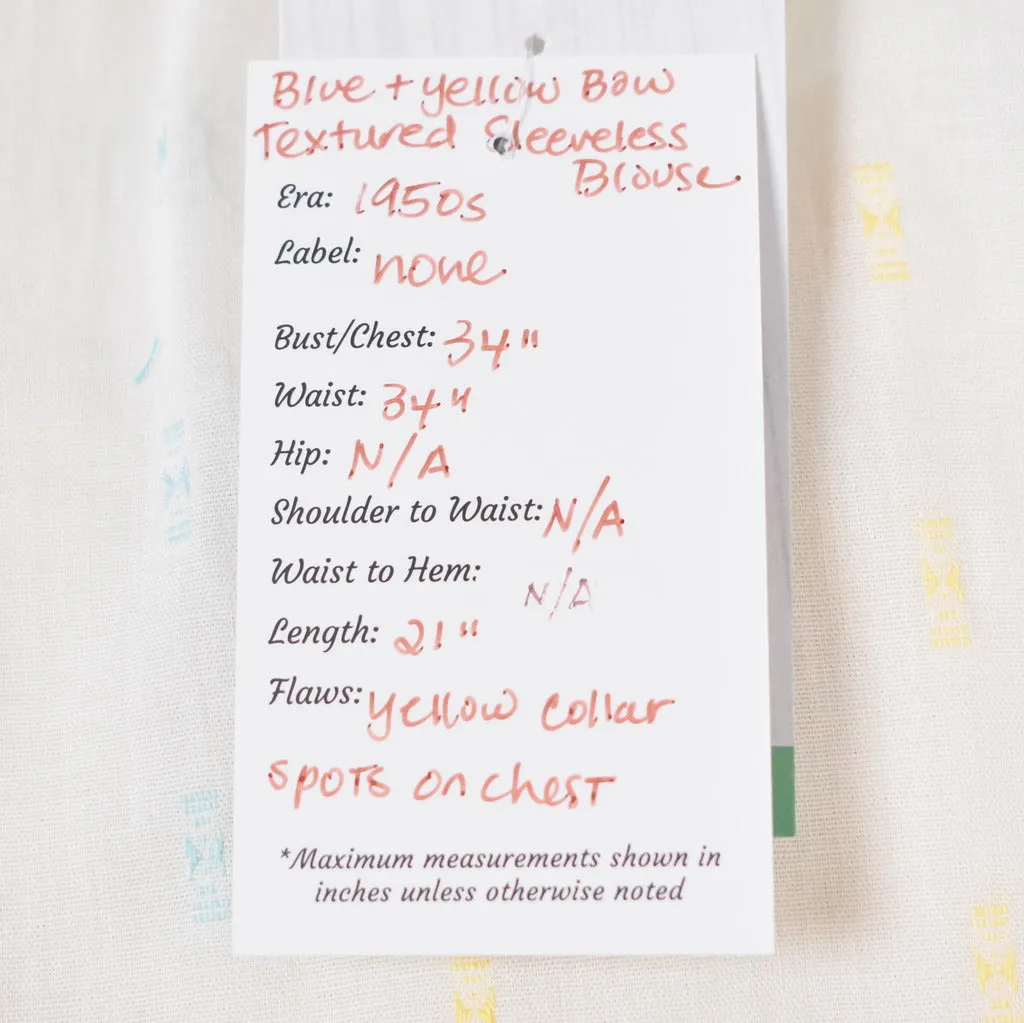 Blue + yellow Bow
Textured Sleeveless
Blouse
Era: 1950s
Label: none
Bust/Chest: 34"
Waist: 34"
Hip: N/A
Shoulder to Waist: N/A
Waist to Hem: N/A
Length: 21"
Flaws: yellow collar
spots on chest
*Maximum measurements shown in
inches unless otherwise noted